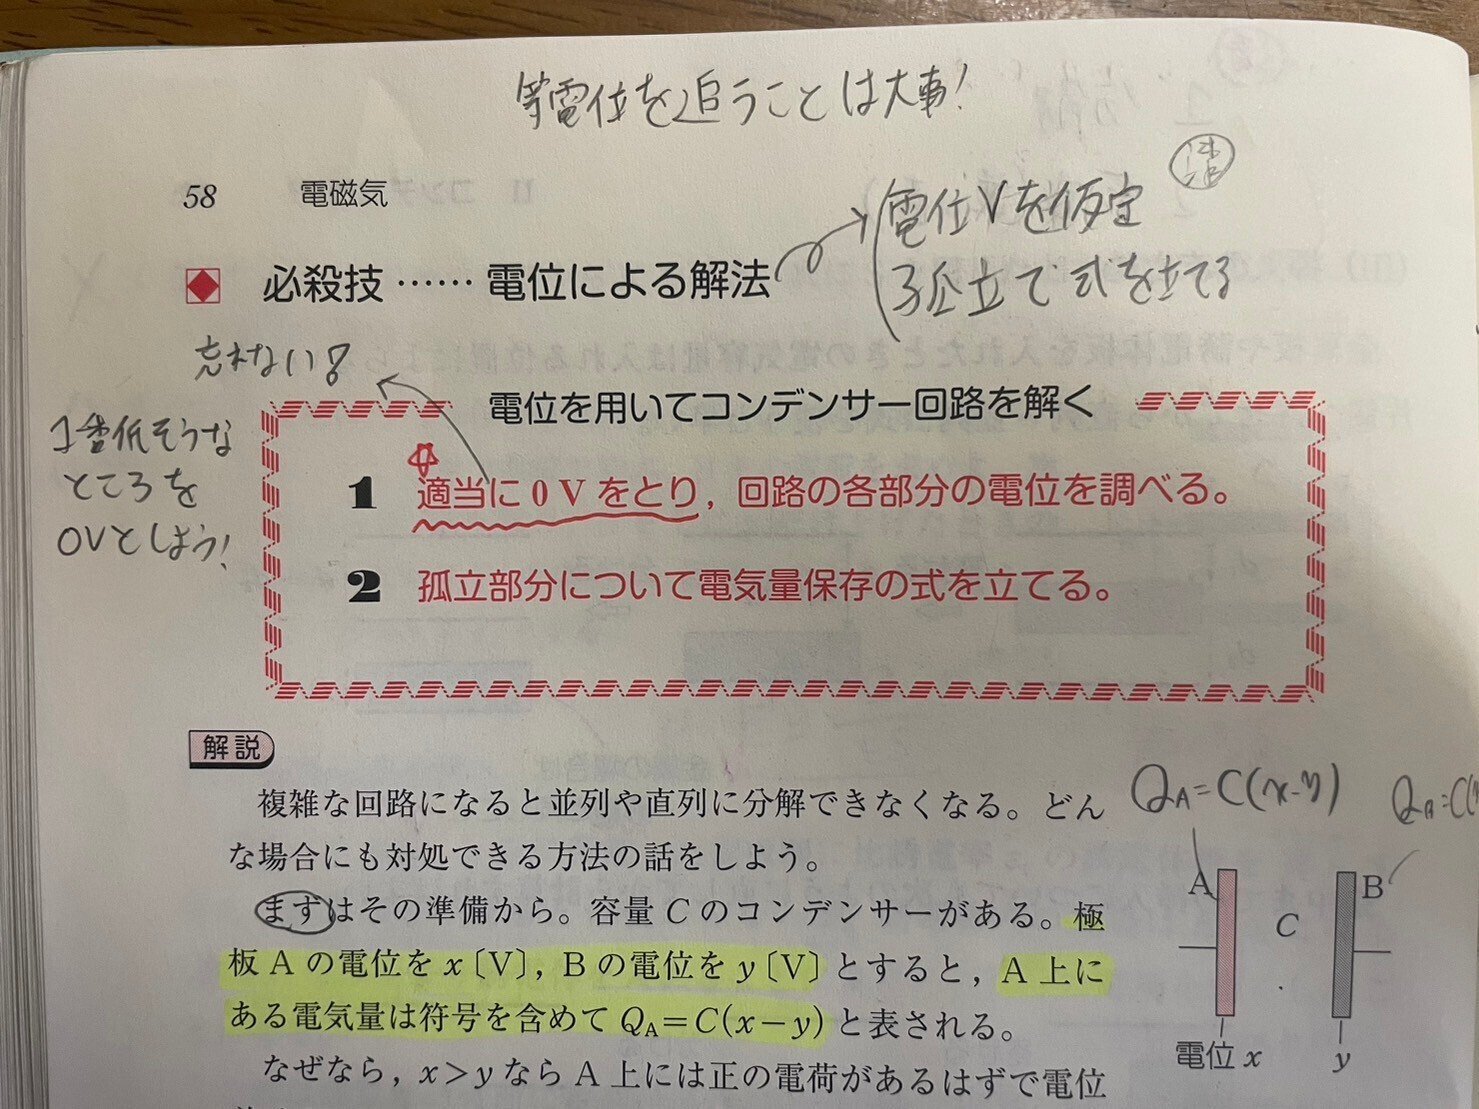 等電位を追うことは大事!
58 電磁気
必殺技……電位による解法
電位Vを仮定
孤立で式を立てる
忘れない!
1番低そうな
ところを
0Vとしよう!
電位を用いてコンデンサー回路を解く
1 適当に0Vをとり，回路の各部分の電位を調べる。
2 孤立部分について電気量保存の式を立てる。
解説
複雑な回路になると並列や直列に分解できなくなる。どん
な場合にも対処できる方法の話をしよう。
まずはその準備から。容量Cのコンデンサーがある。極
板Aの電位をx〔V〕，Bの電位をy〔V〕とすると，A上に
ある電気量は符号を含めてQA=C(x−y)と表される。
なぜなら，x>yならA上には正の電荷があるはずで電位
QA=C(x-y)
A
C
B
電位x
y